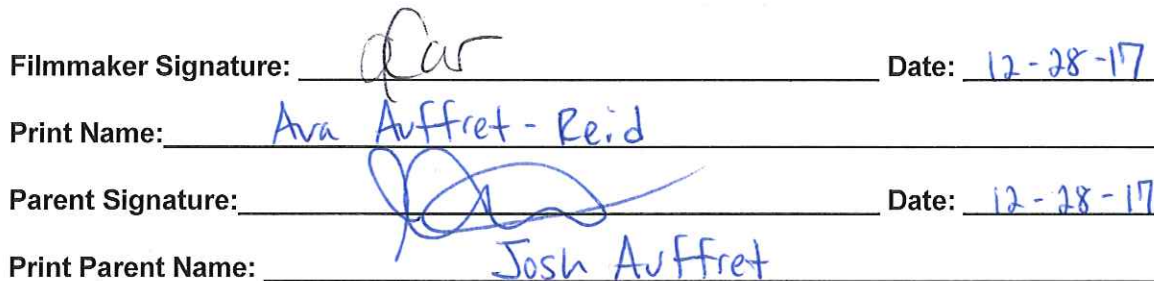 Filmmaker Signature: Date: 12-28-17
Print Name: Ava Auffret-Reid
Parent Signature: Date: 12-28-17
Print Parent Name: Josh Auffret